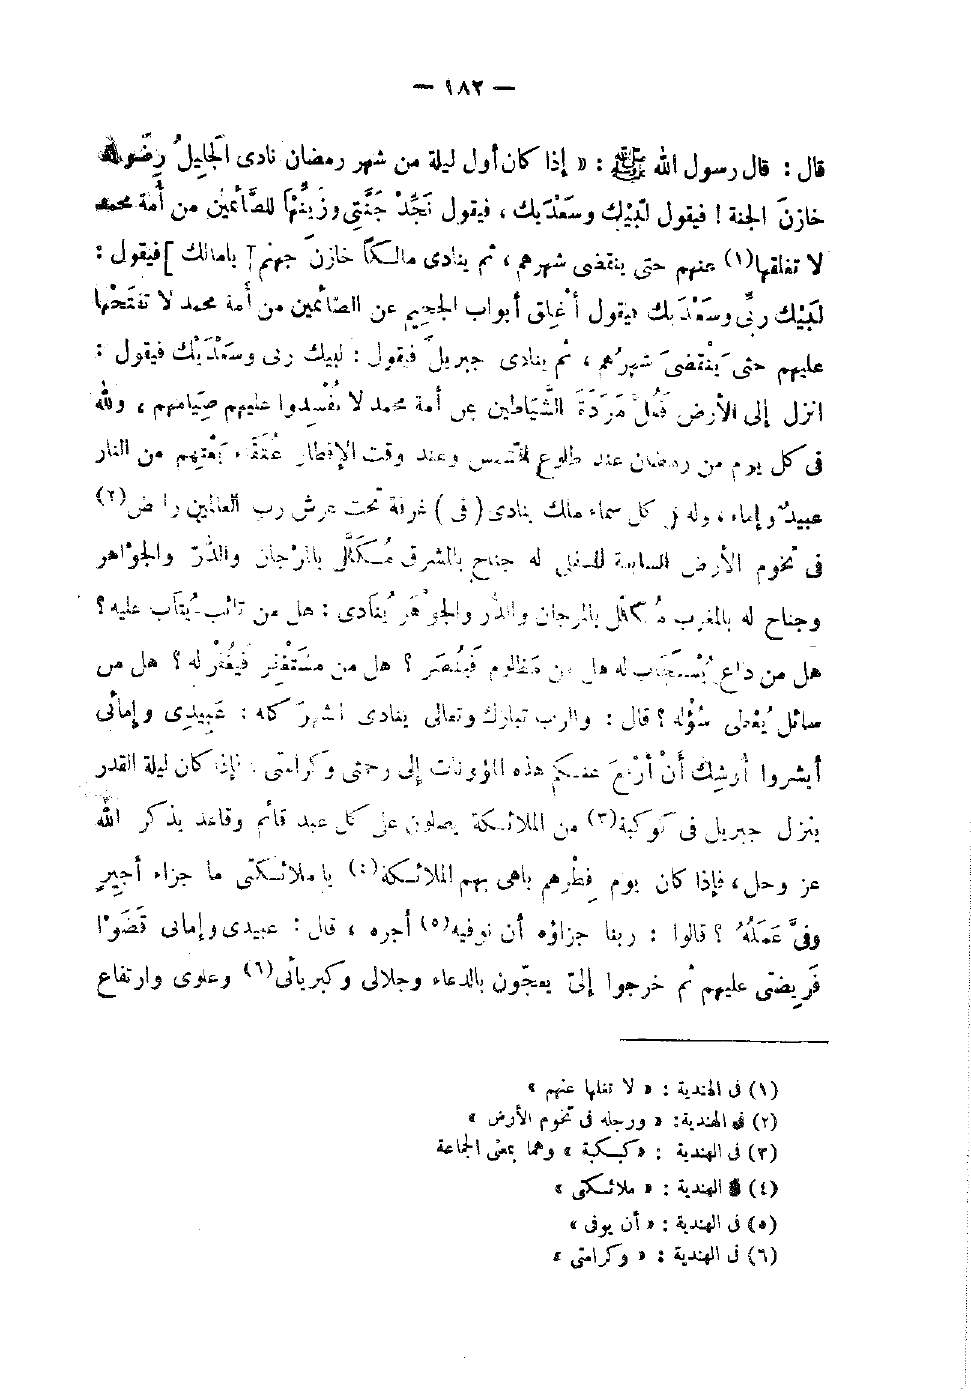 — ١٨٢ —
قال : قال رسول الله ﷺ : « إذا كان أول ليلة من شهر رمضان نادى الجَلِيلُ رِضْوَانَ
خازنَ الجنة ! فيقول لَبَّيْكَ وسَعْدَيك ، فيقول نَجِّدْ جَنَّتِى وزَيِّنْهَا للصَّائمين من أُمة محمد
لا تغلقها(١) عنهم حتى ينقضى شهرهم ، ثم ينادى مالكًا خازنَ جهنم [ يامالك ] فيقول :
لَبَّيْك ربِّى وسَعْدَيك فيقول أَغْلِق أبواب الجحيم عن الصَّائمين من أُمة محمد لا تَفْتَحْها
عليهم حتى يَنْقضىَ شهرُهم ، ثم ينادى جبريلَ فيقول : لبيك ربى وسَعْدَيْك فيقول :
انزل إلى الأرض فَغُلَّ مَرَدَةَ الشَّيَاطين عن أمة محمد لا تُفْسِدوا عليهم صِيَامهم ، ولله
فى كل يوم من رمضان عند طلوع الشمس وعند وقت الإفطار عُتَقَاء يَعْتِقهم من النار
عبيدٌ وإماء ، وله فى كل سماء ملك ينادى ( فى ) غرفة تحت عرش رب العالمين را ض(٢)
فى تخوم الأرض السابعة السفلى له جناح بالمشرق مُكَلَّل بالمرجان والدُّرّ والجواهر
وجناح له بالمغرب مُكلَّل بالمرجان والدُّر والجَوْهَر يُنَادى : هل من تائب يُتَاب عليه ؟
هل من داع يُسْتَجَاب له هل من مَظلوم فَيُنصَر ؟ هل من مسْتَغْفِر فَيُغْفَر له ؟ هل من
سائل يُعْطَى سُؤْلَه ؟ قال : والرب تبارك وتعالى ينادى الشهرَ كله : عَبِيدِى وإمائى
أبشروا أُوشِكُ أَنْ أَرْفَعَ عنكم هذه المؤونات إلى رحمتى وكرامتى . فإذا كان ليلة القدر
ينزل جبريل فى كوكبة(٣) من الملائكة يصلون على كل عبد قائم وقاعد يذكر الله
عز وجل ، فإذا كان يوم فِطْرهم باهى بهم الملائكة(٤) يا ملائكتى ما جزاء أجيرٍ
وفىَّ عَمَلَهُ ؟ قالوا : ربنا جزاؤه أن نوفيه(٥) أجره ، قال : عبيدى وإمائى قَضَوْا
فَرِيضتى عليهم ثم خرجوا إلىّ يعجّون بالدعاء وجلالى وكبريائى(٦) وعلوى وارتفاع
(١) فى الهندية : « لا تغلها عنهم »
(٢) فى الهندية: « ورجله فى تخوم الأرض »
(٣) فى الهندية : « كبكبة » وهما بمعنى الجماعة
(٤) فى الهندية : « ملائكتى »
(٥) فى الهندية : « أن يوفى »
(٦) فى الهندية : « وكرامتى »